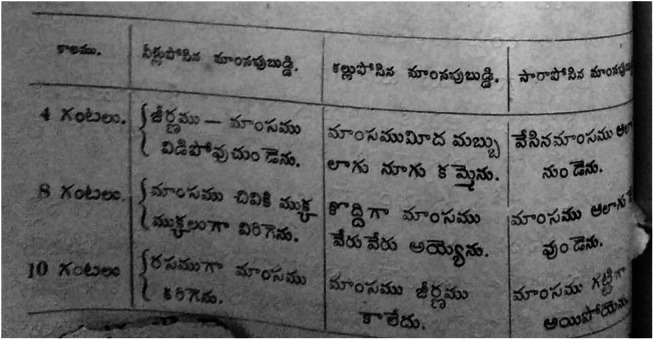 కాలము. నీళ్లుపోసిన మాంసపుబుడ్డి. కల్లుపోసిన మాంసపుబుడ్డి. సారాపోసిన
4 గంటలు. జీర్ణము — మాంసము మాంసముమీద మబ్బు వేసినమాంసము
విడిపోవుచుండెను. లాగు నూగు కమ్మెను. నుండెను.
8 గంటలు. మాంసము చివికి ముక్క కొద్దిగా మాంసము మాంసము
ముక్కలుగా విరిగెను. వేరువేరు అయ్యెను. వుండెను.
10 గంటలు రసముగా మాంసము మాంసము జీర్ణము మాంసము గట్టిగా
కరిగెను. కాలేదు. అయిపోయెను